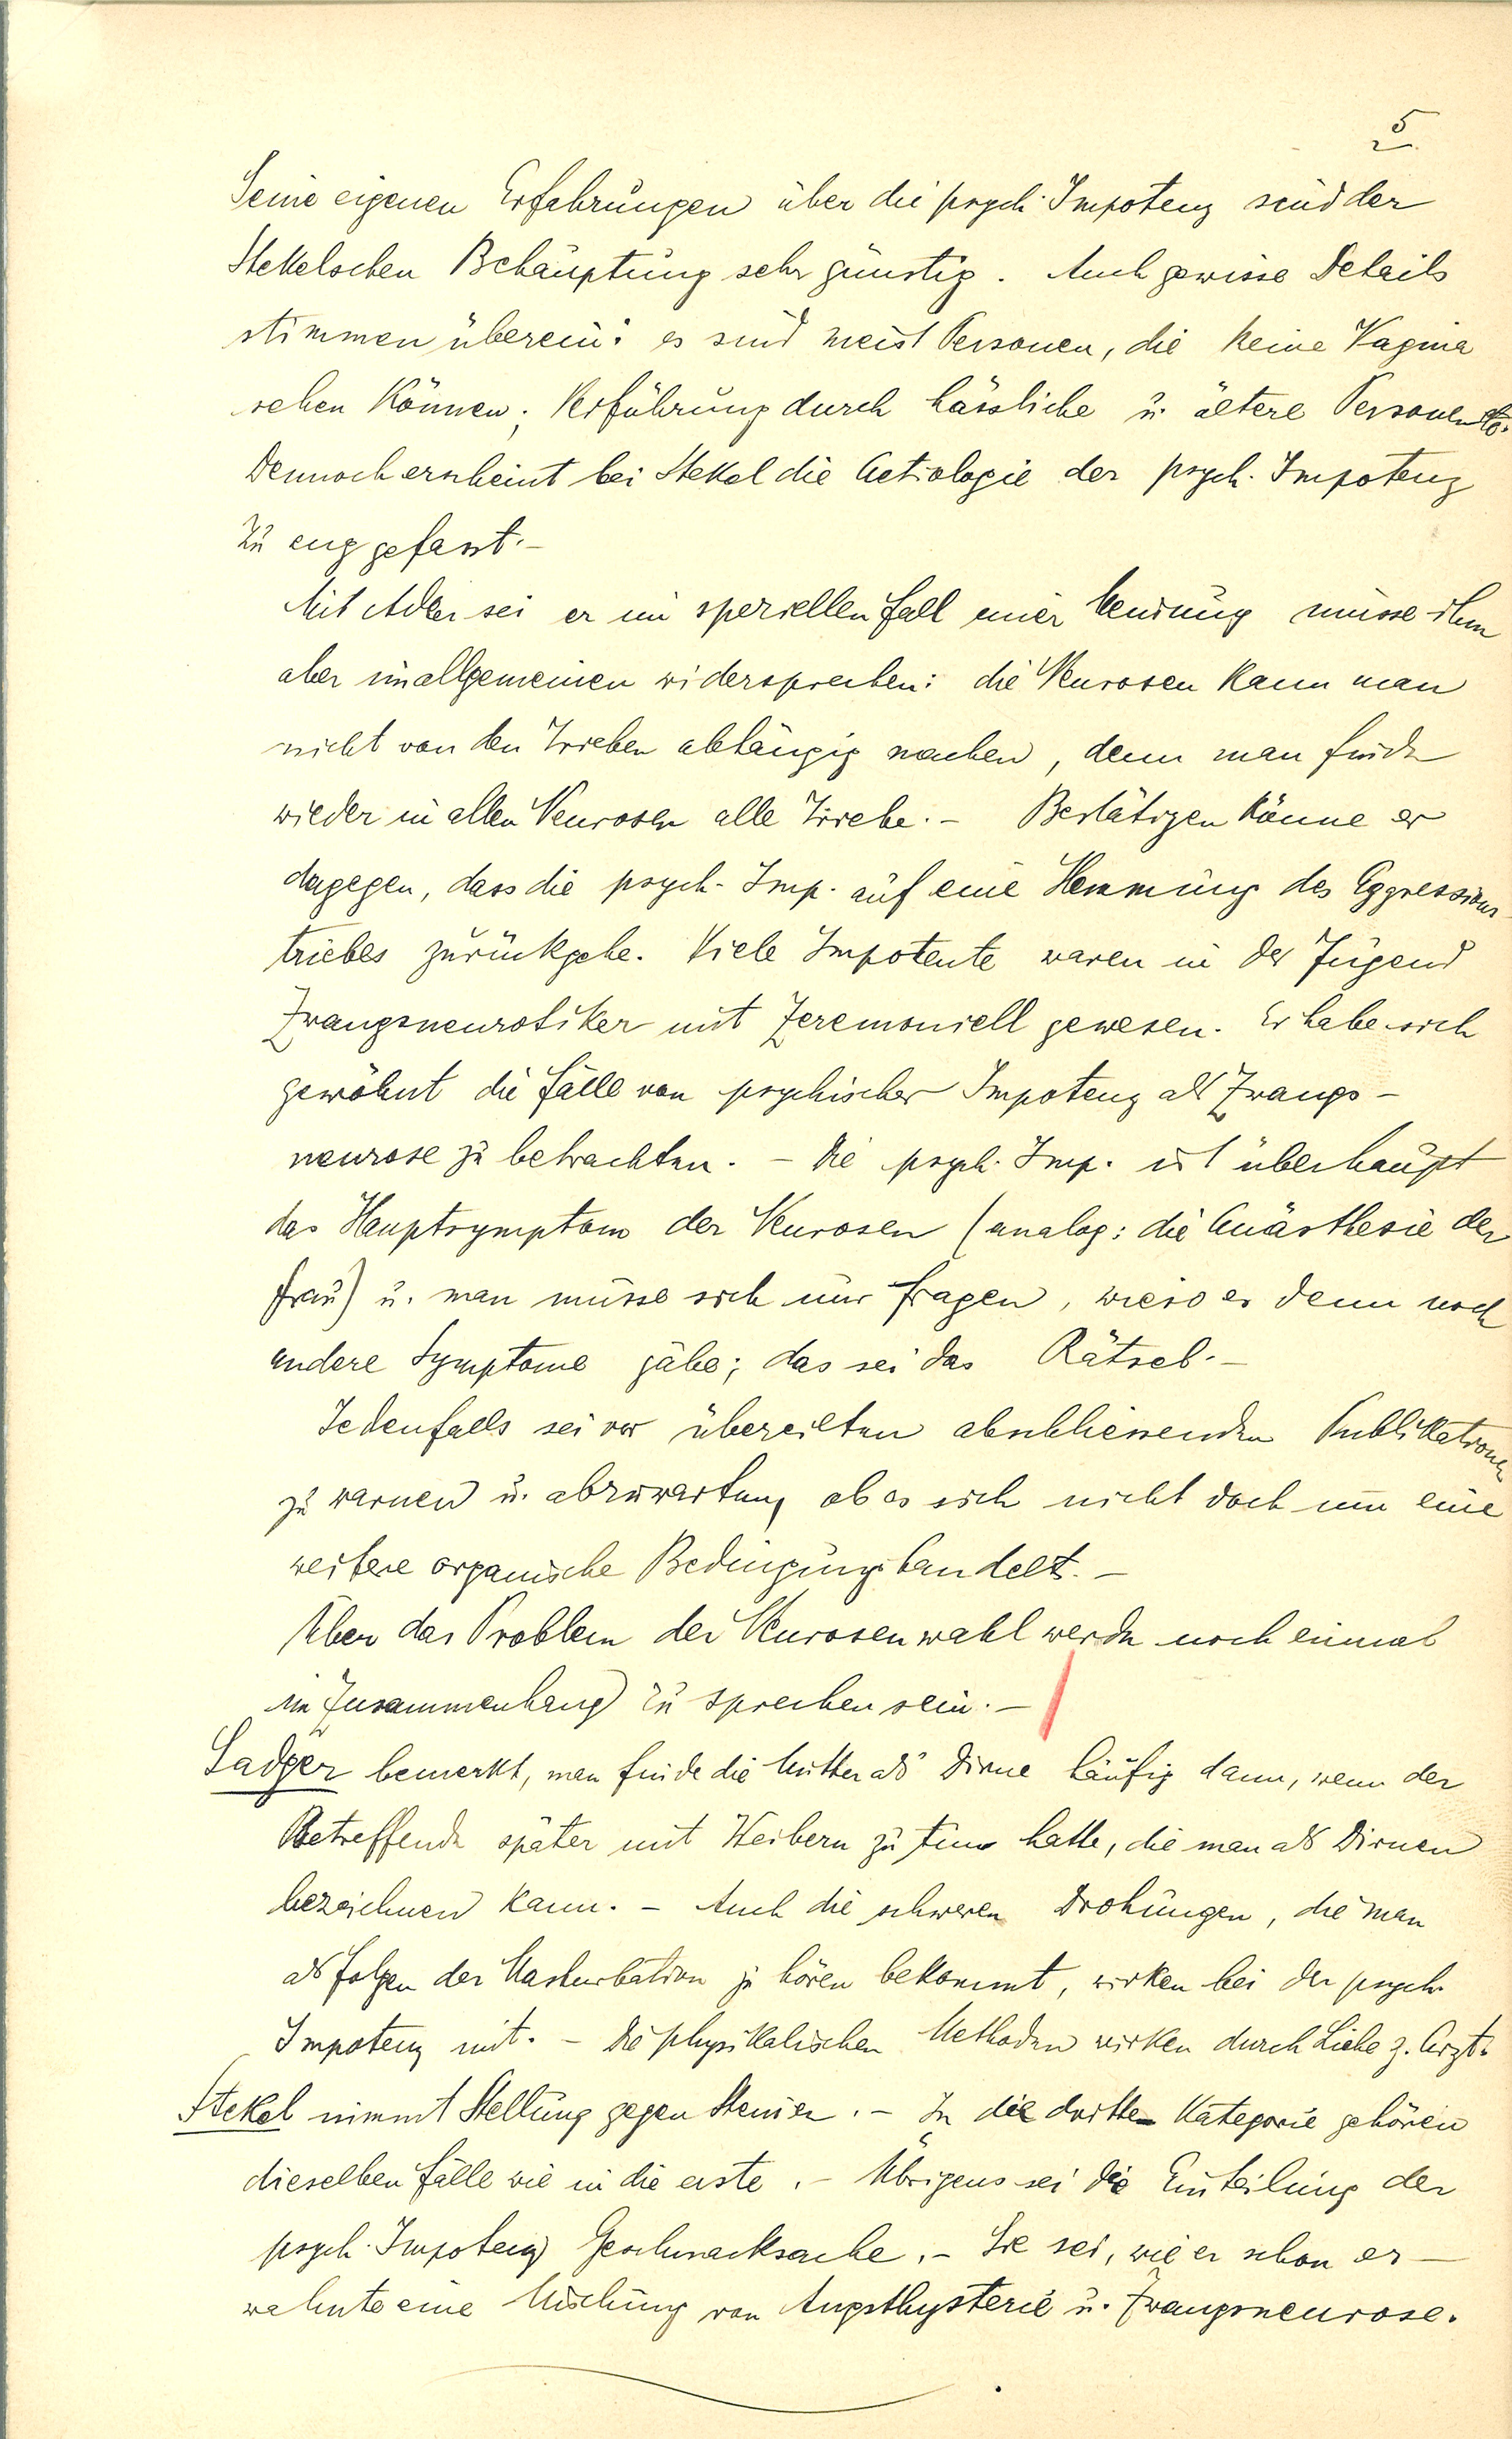 5
Seine eigenen Erfahrungen über die psych. Impotenz sind der
Stekelschen Behauptung sehr günstig. Auch gewisse Details
stimmen überein: es sind meist Personen, die keine Vagina
sehen können; Verführung durch hässliche u. ältere Personen etc.
Dennoch erscheint bei Stekel die Aetiologie der psych. Impotenz
zu eng gefasst.-
Mit Adler sei er im speziellen Fall einer Meinung müsse ihm
aber im allgemeinen widersprechen: die Neurosen kann man
nicht von den Trieben abhängig machen, denn man finde
wieder in allen Neurosen alle Triebe.- Bestätigen könne er
dagegen, dass die psych. Imp. auf eine Hemmung des Aggressions-
triebes zurückgehe. Viele Impotente waren in der Jugend
Zwangsneurotiker mit Zeremoniell gewesen. Er habe sich
gewöhnt die Fälle von psychischer Impotenz als Zwangs-
neurose zu betrachten. - Die psych. Imp. ist überhaupt
das Hauptsymptom der Neurosen (analog: die Anästhesie der
Frau) u. man müsse sich nur fragen, wieso es denn noch
andere Symptome gäbe; das sei das Rätsel.-
Jedenfalls sei vor übereilten abschliessenden Publikationen
zu warnen u. abzuwarten, ob es sich nicht doch um eine
weitere organische Bedingung handelt.-
Über das Problem der Neurosenwahl werde noch einmal
im Zusammenhang zu sprechen sein.-
Sadger bemerkt, man finde die Mutter als Dirne häufig dann, wenn der
Betreffende später mit Weibern zu tun hatte, die man als Dirnen
bezeichnen kann. - Auch die schweren Drohungen, die man
als Folgen der Masturbation zu hören bekommt, wirken bei der psych.
Impotenz mit. - Die physikalischen Methoden wirken durch Liebe z. Arzt.
Stekel nimmt Stellung gegen Steiner. - In die dritte Kategorie gehören
dieselben Fälle wie in die erste. - Übrigens sei die Einteilung der
psych. Impotenz Geschmacksache. - Sie sei, wie er schon er-
wähnte eine Mischung von Angsthysterie u. Zwangsneurose.